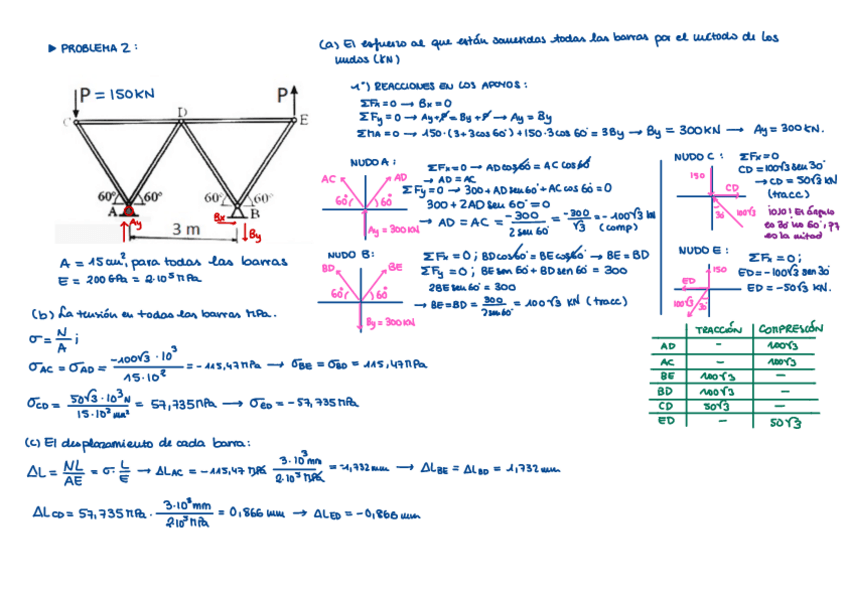 ▶ PROBLEMA 2:
P = 150KN
P
C
D
E
60°
60°
60°
60°
A
B
Ay
Bx
By
3 m
A = 15 cm², para todas las barras
E = 200 GPa = 2·10⁵ MPa
(a) El esfuerzo al que están sometidas todas las barras por el método de los
nudos (KN)
1º) REACCIONES EN LOS APOYOS:
ΣFx=0 → Bx=0
ΣFy=0 → Ay+P=By+P → Ay=By
ΣMA=0 → 150·(3+3cos60°)+150·3cos60°=3By → By=300KN → Ay=300KN.
NUDO A:
AC
AD
60°
60°
Ay=300KN
ΣFx=0 → ADcos60°=ACcos60°
→ AD=AC
ΣFy=0 → 300+ADsen60°+ACcos60=0
300+2ADsen60°=0
→ AD=AC=-300/2sen60°=-300/√3=-100√3 KN
(comp)
NUDO B:
BD
BE
60°
60°
By=300KN
ΣFx=0; BDcos60°=BEcos60° → BE=BD
ΣFy=0; BEsen60°+BDsen60°=300
2BEsen60°=300
→ BE=BD=300/2sen60°=100√3 KN (tracc)
NUDO C:
150
CD
30°
100√3
ΣFx=0
CD=100√3sen30°
→ CD=50√3KN
(tracc)
¡OJO! El ángulo
es 30° no 60°, pq
es la mitad
NUDO E:
ED
150
100√3
30°
ΣFx=0;
ED=-100√3sen30°
ED=-50√3KN.
TRACCIÓN COMPRESIÓN
AD - 100√3
AC - 100√3
BE 100√3 -
BD 100√3 -
CD 50√3 -
ED - 50√3
(b) La tensión en todas las barras MPa.
σ=N/A;
σAC=σAD=-100√3·10³/15·10²=-115,47MPa → σBE=σBD=115,47MPa
σCD=50√3·10³N/15·10²mm²=57,735MPa → σED=-57,735MPa
(c) El desplazamiento de cada barra:
ΔL=NL/AE=σ·L/E → ΔLAC=-115,47MPa·3·10³mm/2·10⁵MPa=-1,732mm → ΔLBE=ΔLBD=1,732mm
ΔLCD=57,735MPa·3·10³mm/2·10⁵MPa=0,866mm → ΔLED=-0,866mm